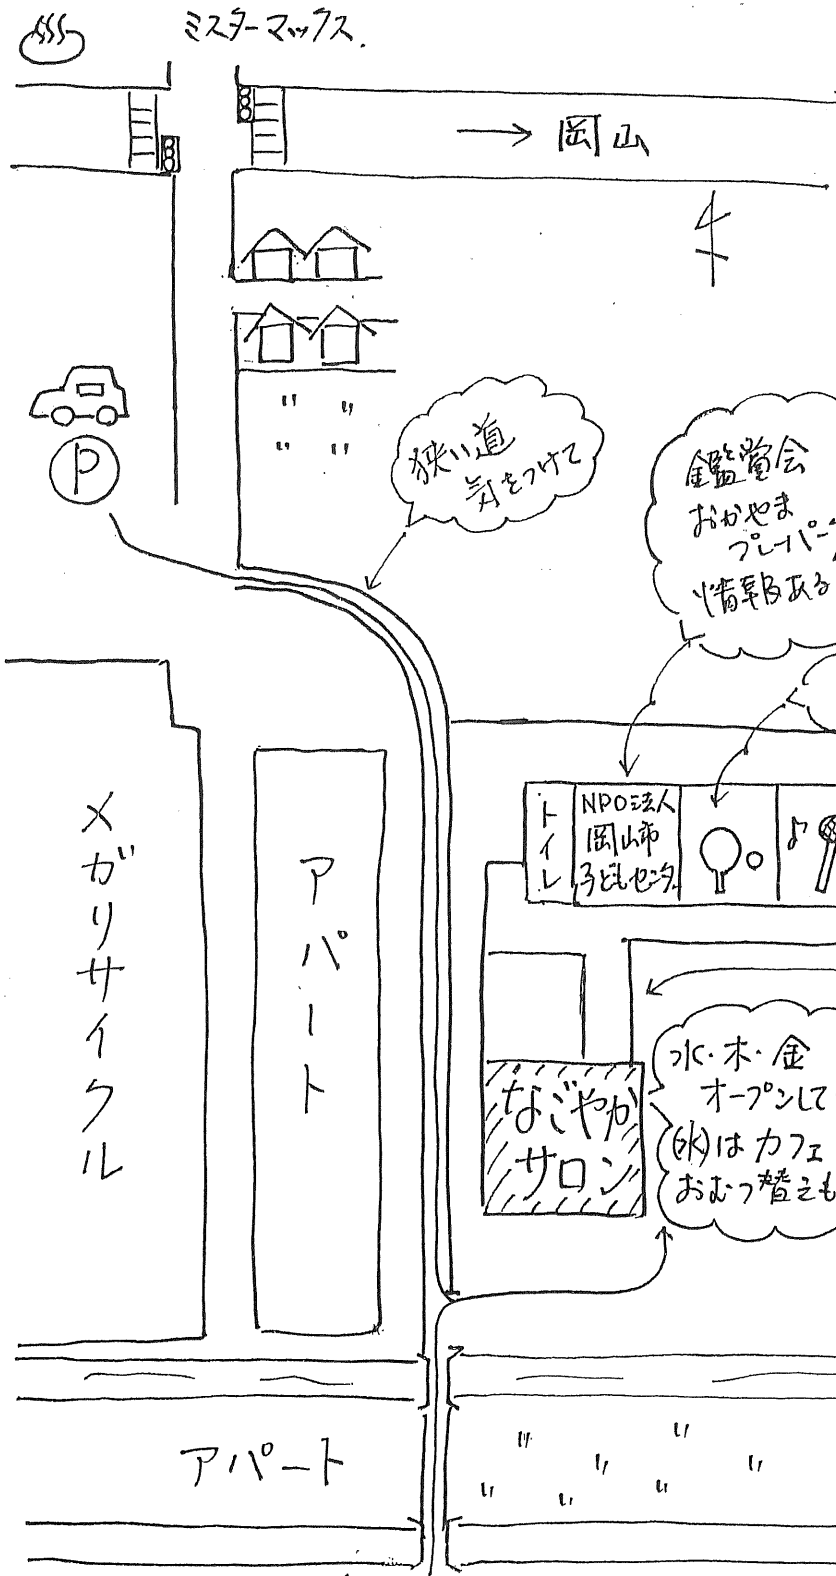 ミスターマックス.
→ 岡山
狭い道
気をつけて
P
鑑賞会
おかやま
プレーパー
情報ある
メガリサイクル
アパート
トイレ
NPO法人
岡山市
子どもセンター
なごやか
サロン
水・木・金
オープンして
(水)は カフェ
おむつ替えも
アパート